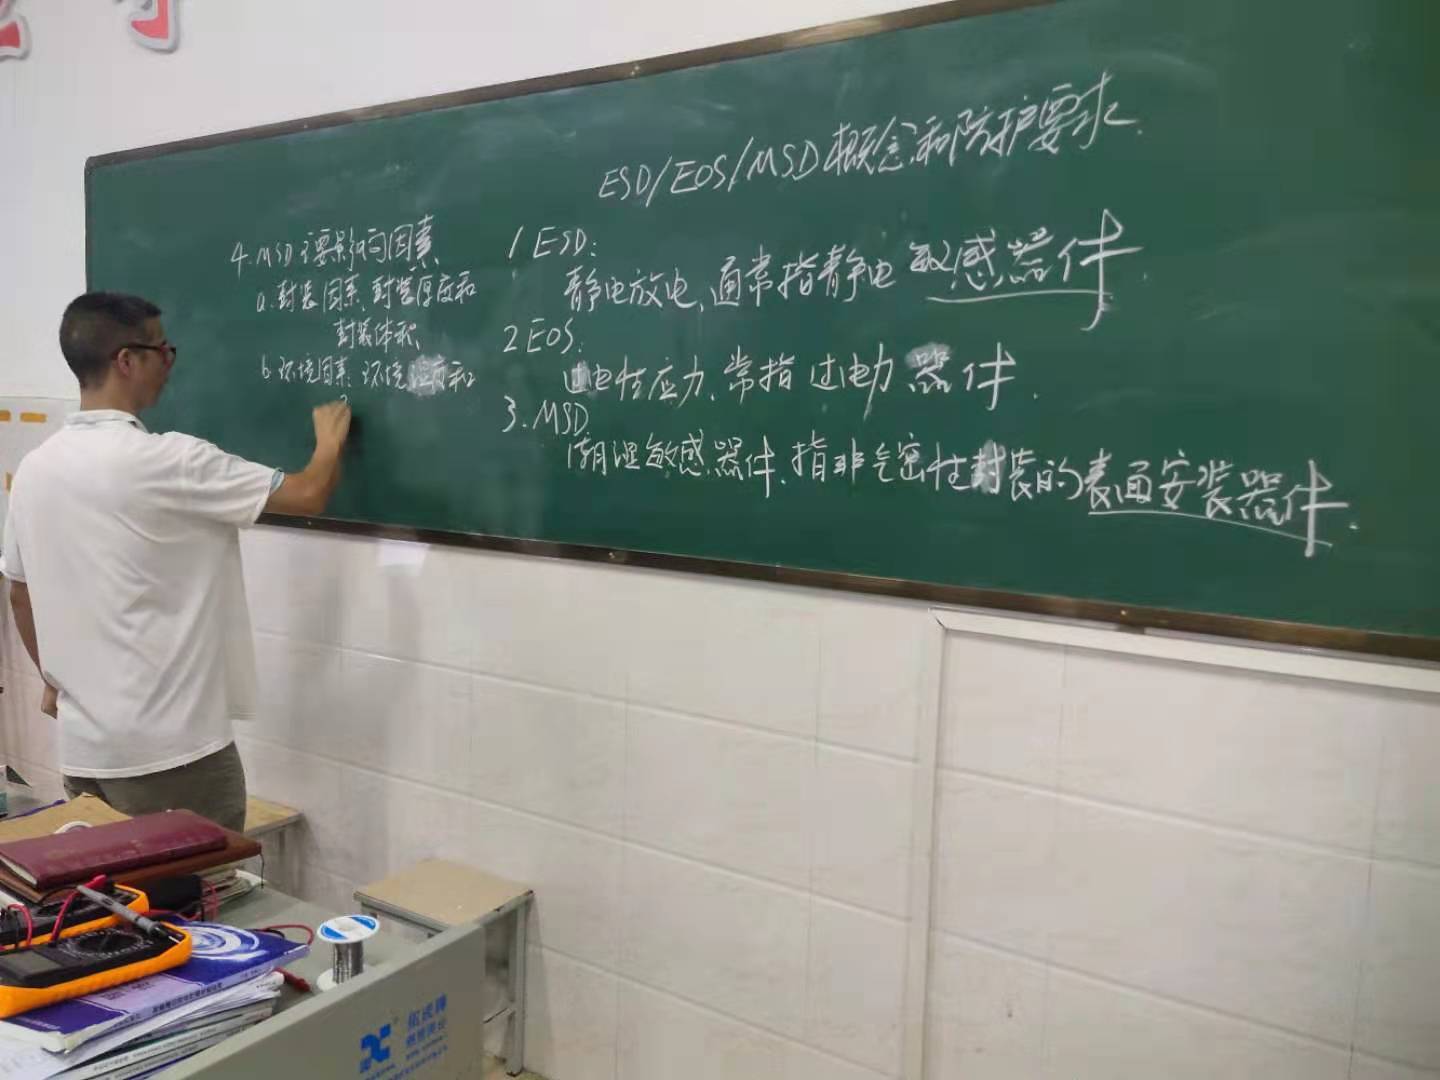 ESD/EOS/MSD概念和防护要求.
1 ESD:
静电放电、通常指静电敏感器件.
2 EOS:
过电性应力、常指过电力器件.
3. MSD
潮湿敏感器件、指非气密性封装的表面安装器件.
4. MSD主要影响因素
a. 封装因素、封装厚度和
封装体积、
b. 环境因素、环境湿度和